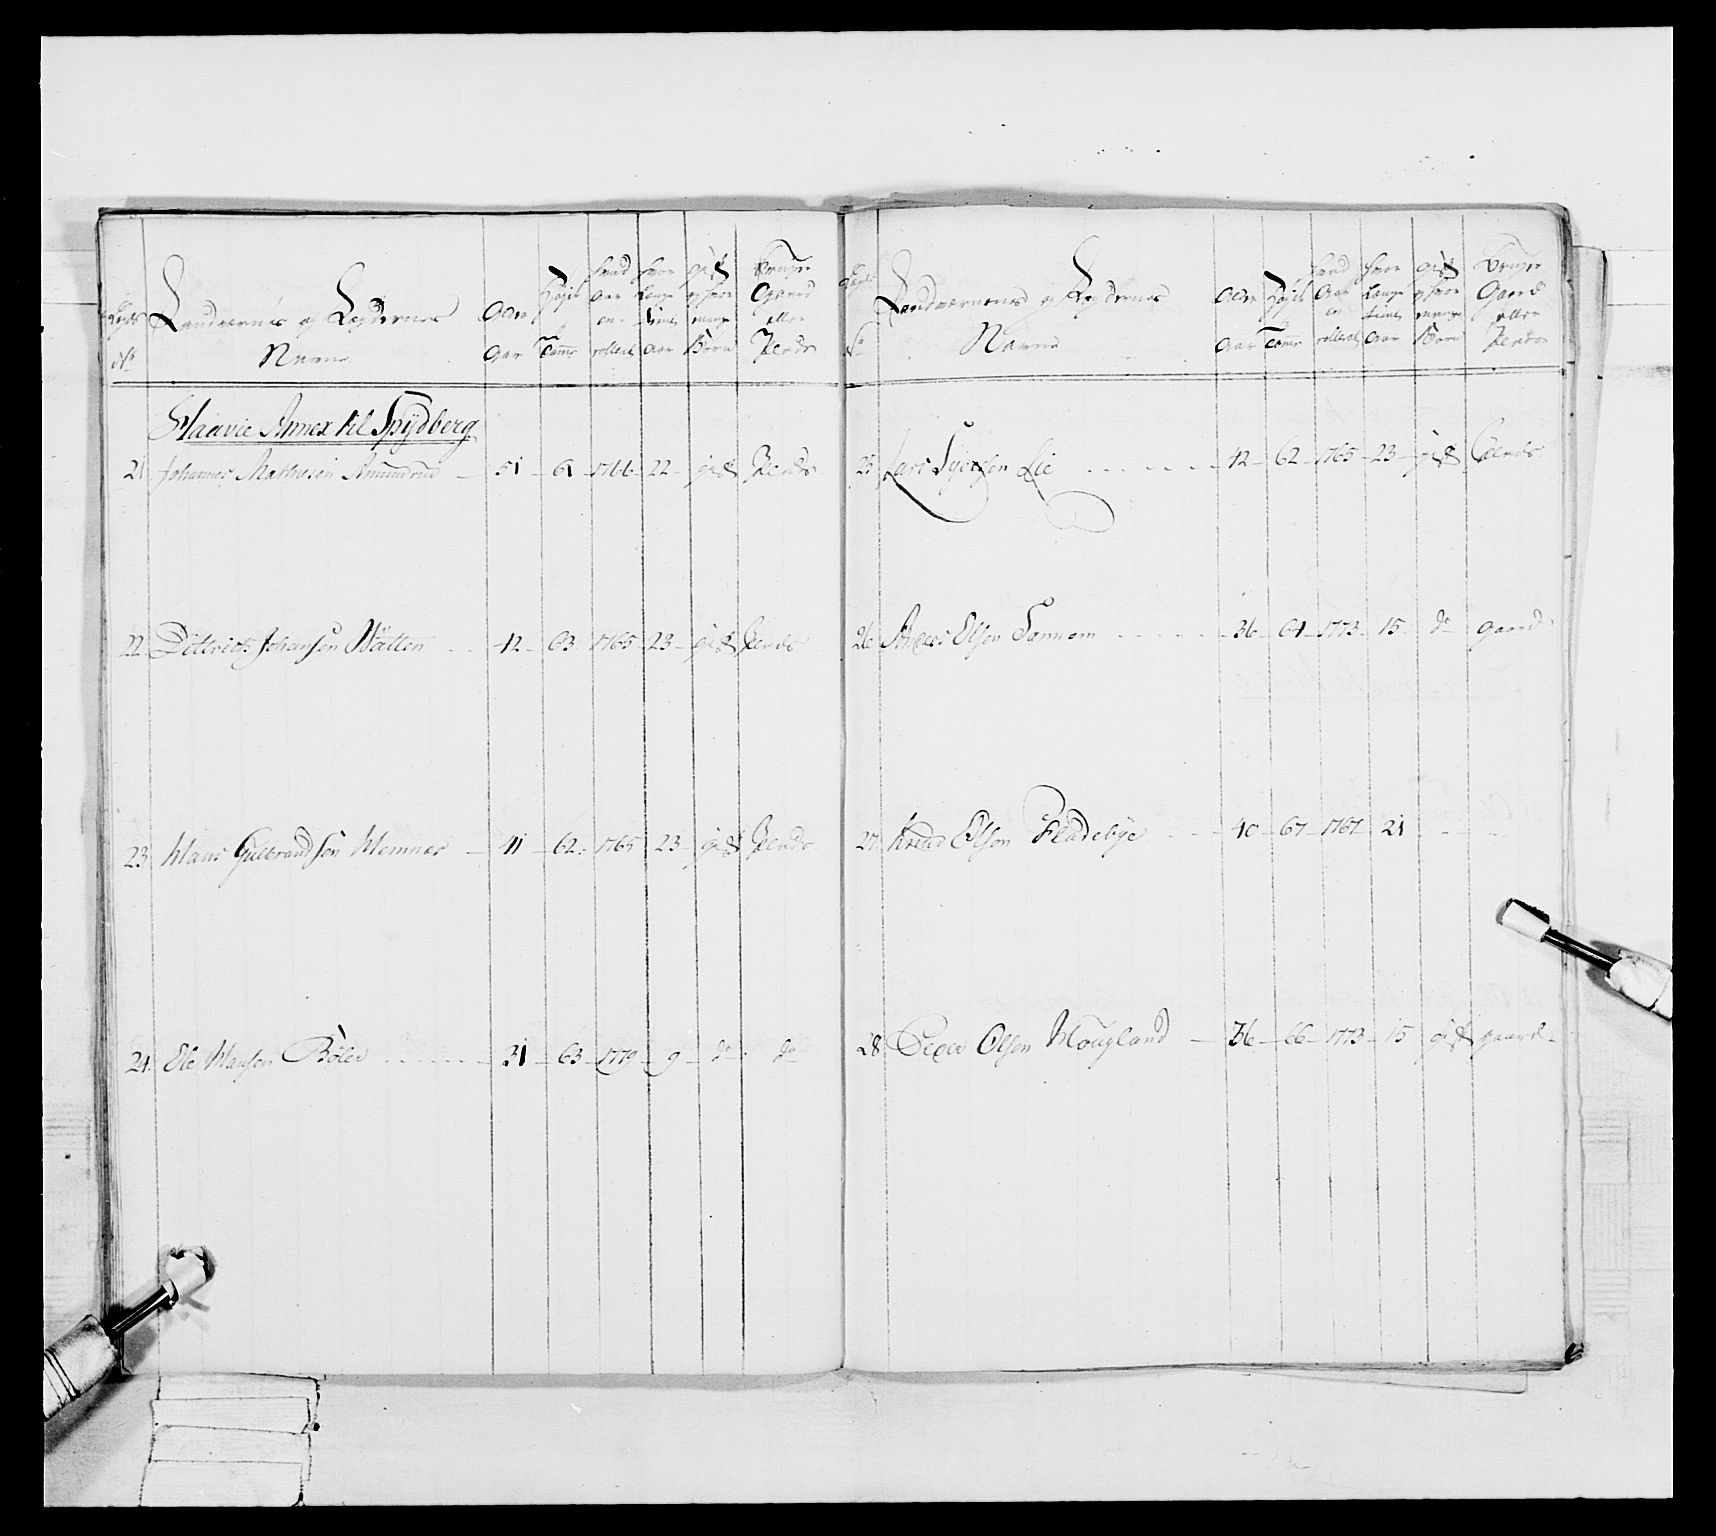 Legds No Landværnes og Legdernes Navne Alder Aar Høyde Tomr hvad Aar enrolleret hvor længe tient Aar gift og hvor mange Børn bruger Gaard eller Plads
Haavie Annex til Spydberg
21 Johannes Mathiesen Amundrud 51 61 1766 22 gift Plads
22 Ditterich Johansen Watten 42 63 1765 23 gift Plads
23 Hans Gulbrandsen Hemnes 41 62 1765 23 gift Plads
24 Ole Hansen Bøler 31 63 1779 9 do do
Legds No Landværnenes og Legdernes Navne Alder Aar Høyde Tomr hvad Aar enrolleret hvor længe tient Aar gift og hvor mange Børn bruger Gaard eller Plads
25 Lars Lie 42 62 1765 23 gift Plads
26 Anders Olsen Sannem 36 64 1773 15 do gaard
27 Knud Olsen Fladebye 40 67 1767 21
28 Peder Olsen Hougland 36 66 1773 15 gift gaard